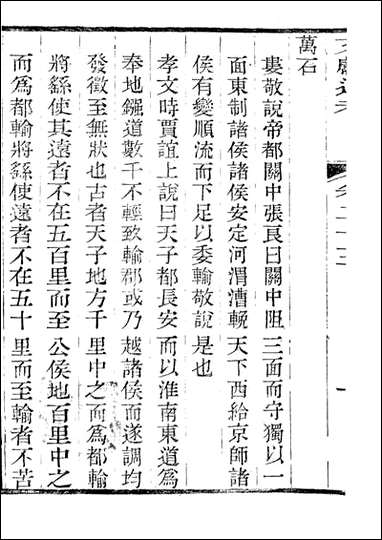 萬石
婁敬說帝都關中張良曰關中阻三面而守獨以一
面東制諸侯諸侯安定河渭漕輓天下西給京師諸
侯有變順流而下足以委輸敬說是也
孝文時賈誼上說曰天子都長安而以淮南東道爲
奉地鏹道數千不輕致輸郡或乃越諸侯而遂調均
發徵至無狀也古者天子地方千里中之而爲都輸
將繇使其遠者不在五百里而至公侯地百里中之
而爲都輸將繇使遠者不在五十里而至輸者不苦